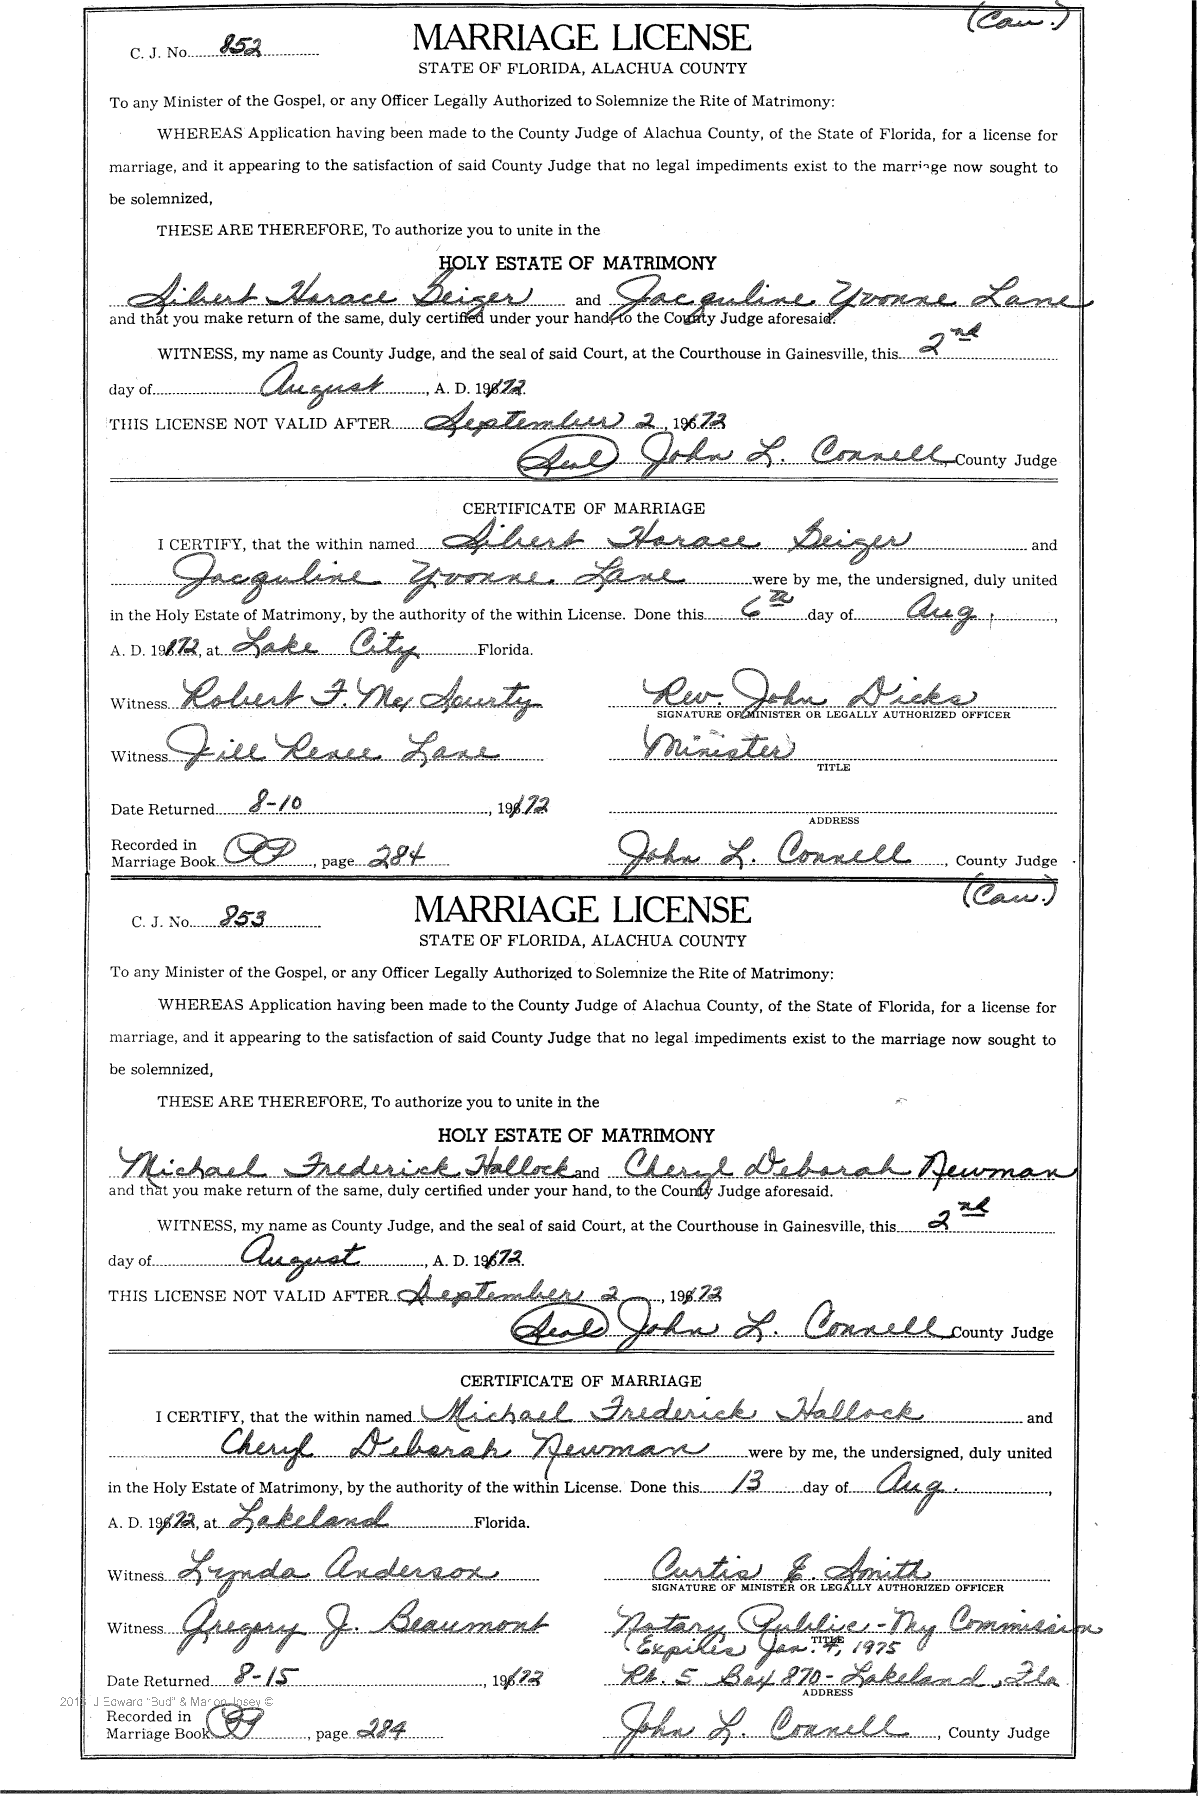 (Cau.)
C. J. No. 852
MARRIAGE LICENSE
STATE OF FLORIDA, ALACHUA COUNTY
To any Minister of the Gospel, or any Officer Legally Authorized to Solemnize the Rite of Matrimony:
WHEREAS Application having been made to the County Judge of Alachua County, of the State of Florida, for a license for
marriage, and it appearing to the satisfaction of said County Judge that no legal impediments exist to the marriage now sought to
be solemnized,
THESE ARE THEREFORE, To authorize you to unite in the
HOLY ESTATE OF MATRIMONY
Silbert Horace Geiger and Jacguline Yvonne Lane
and that you make return of the same, duly certified under your hand, to the County Judge aforesaid.
WITNESS, my name as County Judge, and the seal of said Court, at the Courthouse in Gainesville, this 2nd
day of August, A. D. 1972.
THIS LICENSE NOT VALID AFTER September 2, 1972
(Seal) John L. Connell, County Judge
CERTIFICATE OF MARRIAGE
I CERTIFY, that the within named Silbert Horace Geiger and
Jacguline Yvonne Lane were by me, the undersigned, duly united
in the Holy Estate of Matrimony, by the authority of the within License. Done this 6th day of Aug.,
A. D. 1972, at Lake City Florida.
Witness Robert F. Rev. John Dicks
SIGNATURE OF MINISTER OR LEGALLY AUTHORIZED OFFICER
Witness Jill Renee Lane Minister
TITLE
Date Returned 8-10, 1972
ADDRESS
Recorded in
Marriage Book PP, page 284 John L. Connell, County Judge
(Cau.)
C. J. No. 853
MARRIAGE LICENSE
STATE OF FLORIDA, ALACHUA COUNTY
To any Minister of the Gospel, or any Officer Legally Authorized to Solemnize the Rite of Matrimony:
WHEREAS Application having been made to the County Judge of Alachua County, of the State of Florida, for a license for
marriage, and it appearing to the satisfaction of said County Judge that no legal impediments exist to the marriage now sought to
be solemnized,
THESE ARE THEREFORE, To authorize you to unite in the
HOLY ESTATE OF MATRIMONY
Michael Frederick Hallock and Cheryl Deborah Newman
and that you make return of the same, duly certified under your hand, to the County Judge aforesaid.
WITNESS, my name as County Judge, and the seal of said Court, at the Courthouse in Gainesville, this 2nd
day of August, A. D. 1972.
THIS LICENSE NOT VALID AFTER September 2, 1972
(Seal) John L. Connell County Judge
CERTIFICATE OF MARRIAGE
I CERTIFY, that the within named Michael Frederick Hallock and
Cheryl Deborah Newman were by me, the undersigned, duly united
in the Holy Estate of Matrimony, by the authority of the within License. Done this 13 day of Aug.,
A. D. 1972, at Lakeland Florida.
Witness Lynda Anderson Curtis E. Smith
SIGNATURE OF MINISTER OR LEGALLY AUTHORIZED OFFICER
Witness Gregory J. Beaumont Notary Public - My Commission
Expires Jan. 4, 1975
TITLE
Date Returned 8-15, 1972 Rt. 5 Box 870 - Lakeland, Fla
ADDRESS
J Edward "Bud" & Marion Josey ©
Recorded in
Marriage Book PP, page 284 John L. Connell, County Judge